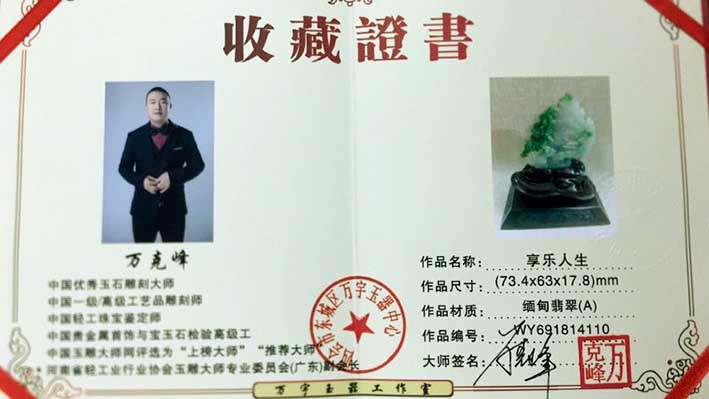 收藏證書
万克峰
中国优秀玉石雕刻大师
中国一级/高级工艺品雕刻师
中国轻工珠宝鉴定师
中国贵金属首饰与宝玉石检验高级工
中国玉雕大师网评选为“上榜大师”“推荐大师”
河南省轻工业行业协会玉雕大师专业委员会(广东)副会长
作品名称：享乐人生
作品尺寸：(73.4x63x17.8)mm
作品材质：缅甸翡翠(A)
作品编号：WY691814110
大师签名：
万克峰
四会市东城区万宇玉器中心
万宇玉器工作室